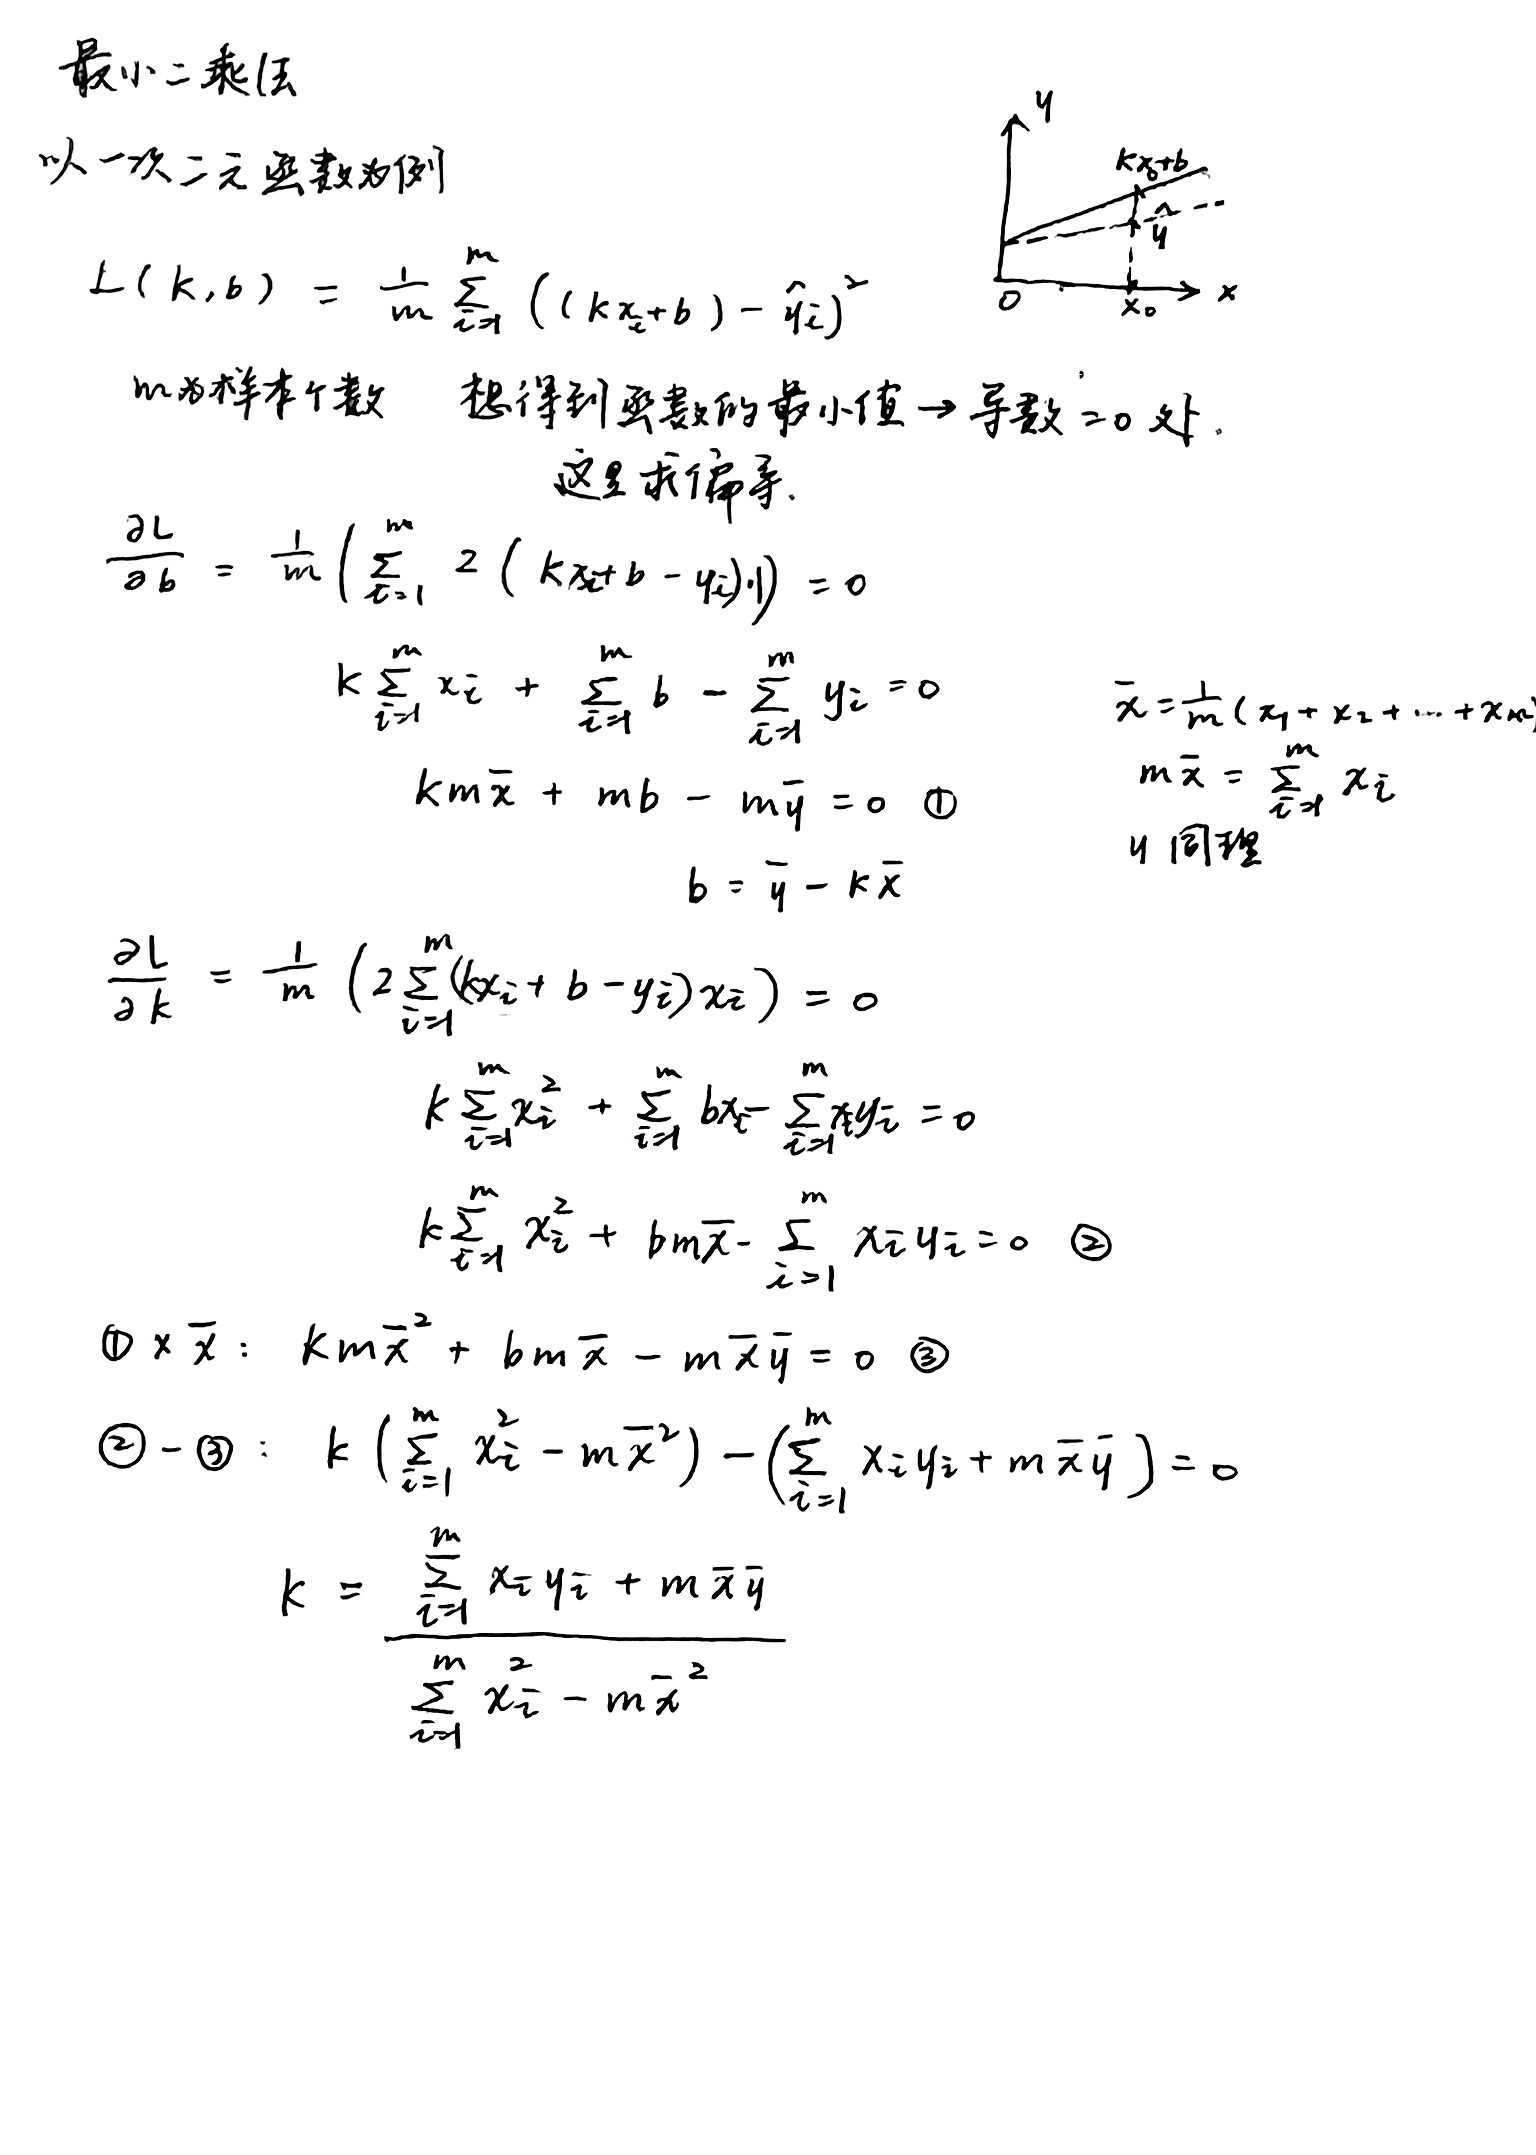 最小二乘法
以一次二元函数为例
y
kx₀+b
ŷ
0 x₀ x
L(k,b) = 1/m ∑_{i=1}^{m} ((kx_i+b) - ŷ_i)²
m为样本个数 想得到函数的最小值→导数=0处.
这里求偏导.
∂L/∂b = 1/m (∑_{i=1}^{m} 2(kx_i+b-y_i)·1) = 0
k∑_{i=1}^{m} x_i + ∑_{i=1}^{m} b - ∑_{i=1}^{m} y_i = 0
x̄ = 1/m (x₁+x₂+…+x_m)
km x̄ + mb - m ȳ = 0 ①
m x̄ = ∑_{i=1}^{m} x_i
y同理
b = ȳ - k x̄
∂L/∂k = 1/m (2∑_{i=1}^{m}(kx_i+b-y_i)x_i) = 0
k∑_{i=1}^{m} x_i² + ∑_{i=1}^{m} bx_i - ∑_{i=1}^{m} x_i y_i = 0
k∑_{i=1}^{m} x_i² + bm x̄ - ∑_{i=1}^{m} x_i y_i = 0 ②
① × x̄: km x̄² + bm x̄ - m x̄ ȳ = 0 ③
② - ③: k(∑_{i=1}^{m} x_i² - m x̄²) - (∑_{i=1}^{m} x_i y_i + m x̄ ȳ) = 0
k = (∑_{i=1}^{m} x_i y_i + m x̄ ȳ) / (∑_{i=1}^{m} x_i² - m x̄²)